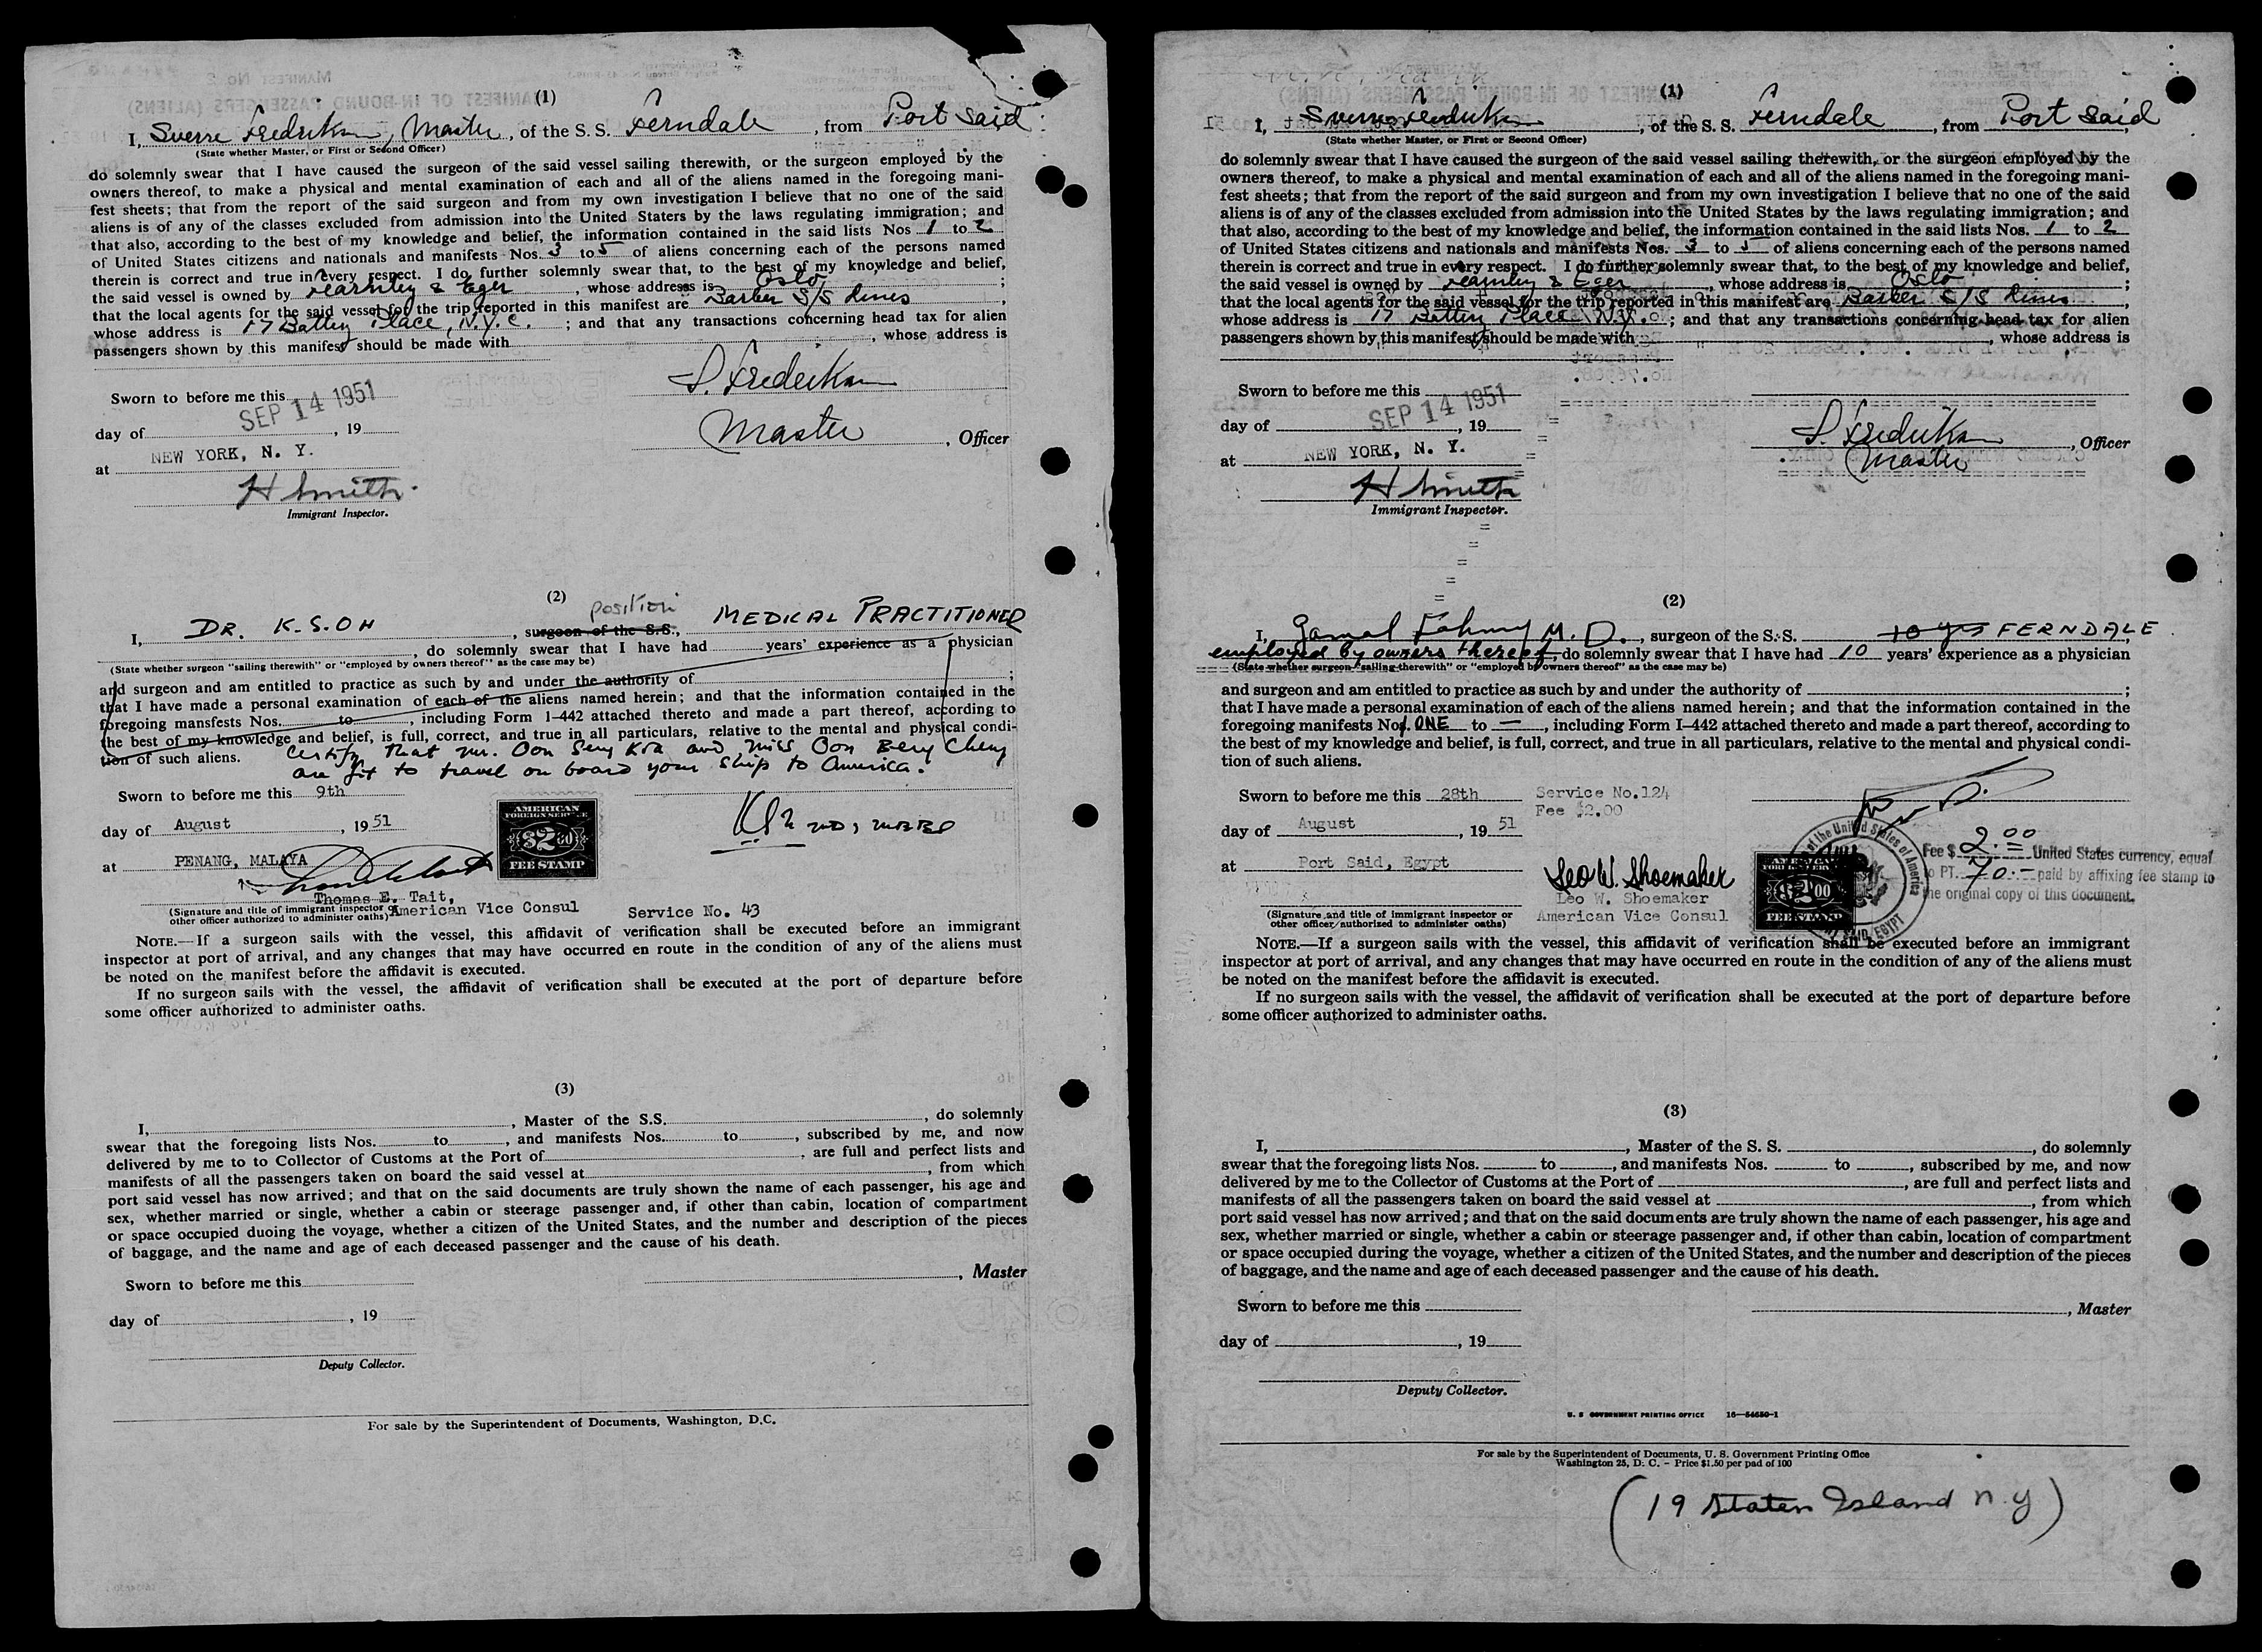 (1)
I, Sverre Fredriksen, Master, of the S. S. Ferndale, from Port Said
(State whether Master, or First or Second Officer)
do solemnly swear that I have caused the surgeon of the said vessel sailing therewith, or the surgeon employed by the
owners thereof, to make a physical and mental examination of each and all of the aliens named in the foregoing mani-
fest sheets; that from the report of the said surgeon and from my own investigation I believe that no one of the said
aliens is of any of the classes excluded from admission into the United Staters by the laws regulating immigration; and
that also, according to the best of my knowledge and belief, the information contained in the said lists Nos 1 to 2
of United States citizens and nationals and manifests Nos. 3 to 5 of aliens concerning each of the persons named
therein is correct and true in every respect. I do further solemnly swear that, to the best of my knowledge and belief,
the said vessel is owned by Fearnley & Eger, whose address is Oslo;
that the local agents for the said vessel for the trip reported in this manifest are Barber S/S Lines,
whose address is 17 Battery Place, N.Y.C.; and that any transactions concerning head tax for alien
passengers shown by this manifest should be made with , whose address is
Sworn to before me this
S. Fredriksen
SEP 14 1951
day of , 19
Master, Officer
at NEW YORK, N. Y.
H Smith
Immigrant Inspector.
(2)
position
I, DR. K.S.OH, surgeon of the S.S., MEDICAL PRACTITIONER
, do solemnly swear that I have had years' experience as a physician
(State whether surgeon "sailing therewith" or "employed by owners thereof" as the case may be)
and surgeon and am entitled to practice as such by and under the authority of ;
that I have made a personal examination of each of the aliens named herein; and that the information contained in the
foregoing mansfests Nos. to , including Form 1-442 attached thereto and made a part thereof, according to
the best of my knowledge and belief, is full, correct, and true in all particulars, relative to the mental and physical condi-
tion of such aliens. Certify that Mr. Oon Seng Kva and Miss Oon Beng Cheng
are fit to travel on board your ship to America.
Sworn to before me this 9th
day of August, 19 51
AMERICAN
FOREIGN SERVICE
$2.00
FEE STAMP
at PENANG, MALAYA
Thomas E. Tait,
(Signature and title of immigrant inspector or
other officer authorized to administer oaths) American Vice Consul Service No. 43
NOTE.—If a surgeon sails with the vessel, this affidavit of verification shall be executed before an immigrant
inspector at port of arrival, and any changes that may have occurred en route in the condition of any of the aliens must
be noted on the manifest before the affidavit is executed.
If no surgeon sails with the vessel, the affidavit of verification shall be executed at the port of departure before
some officer authorized to administer oaths.
(3)
I, , Master of the S.S. , do solemnly
swear that the foregoing lists Nos. to , and manifests Nos. to , subscribed by me, and now
delivered by me to to Collector of Customs at the Port of , are full and perfect lists and
manifests of all the passengers taken on board the said vessel at , from which
port said vessel has now arrived; and that on the said documents are truly shown the name of each passenger, his age and
sex, whether married or single, whether a cabin or steerage passenger and, if other than cabin, location of compartment
or space occupied duoing the voyage, whether a citizen of the United States, and the number and description of the pieces
of baggage, and the name and age of each deceased passenger and the cause of his death.
Sworn to before me this
, Master
day of , 19
Deputy Collector.
For sale by the Superintendent of Documents, Washington, D.C.
(1)
I, Sverre Fredriksen, of the S. S. Ferndale, from Port Said,
(State whether Master, or First or Second Officer)
do solemnly swear that I have caused the surgeon of the said vessel sailing therewith, or the surgeon employed by the
owners thereof, to make a physical and mental examination of each and all of the aliens named in the foregoing mani-
fest sheets; that from the report of the said surgeon and from my own investigation I believe that no one of the said
aliens is of any of the classes excluded from admission into the United States by the laws regulating immigration; and
that also, according to the best of my knowledge and belief, the information contained in the said lists Nos. 1 to 2
of United States citizens and nationals and manifests Nos. 3 to 5 of aliens concerning each of the persons named
therein is correct and true in every respect. I do further solemnly swear that, to the best of my knowledge and belief,
the said vessel is owned by Fearnley & Eger, whose address is Oslo;
that the local agents for the said vessel for the trip reported in this manifest are Barber S/S Lines,
whose address is 17 Battery Place N.Y.; and that any transactions concerning head tax for alien
passengers shown by this manifest should be made with , whose address is
Sworn to before me this
SEP 14 1951
day of , 19
S. Fredriksen, Officer
Master
at NEW YORK, N. Y.
H Smith
Immigrant Inspector.
(2)
I, Gamal Fahmy M. D., surgeon of the S. S. 10 yrs FERNDALE
employed by owners thereof, do solemnly swear that I have had 10 years' experience as a physician
(State whether surgeon "sailing therewith" or "employed by owners thereof" as the case may be)
and surgeon and am entitled to practice as such by and under the authority of ;
that I have made a personal examination of each of the aliens named herein; and that the information contained in the
foregoing manifests Nos. ONE to —, including Form I-442 attached thereto and made a part thereof, according to
the best of my knowledge and belief, is full, correct, and true in all particulars, relative to the mental and physical condi-
tion of such aliens.
Sworn to before me this 28th Service No.124
Fee $2.00
day of August, 19 51
at Port Said, Egypt
Leo W. Shoemaker
Leo W. Shoemaker
American Vice Consul
(Signature and title of immigrant inspector or
other officer authorized to administer oaths)
AMERICAN
$2.00
FEE STAMP
of the United States of America
SAID, EGYPT
Fee $ 2.00 United States currency, equal
to PT. 70.- paid by affixing fee stamp to
the original copy of this document.
NOTE.—If a surgeon sails with the vessel, this affidavit of verification shall be executed before an immigrant
inspector at port of arrival, and any changes that may have occurred en route in the condition of any of the aliens must
be noted on the manifest before the affidavit is executed.
If no surgeon sails with the vessel, the affidavit of verification shall be executed at the port of departure before
some officer authorized to administer oaths.
(3)
I, , Master of the S. S. , do solemnly
swear that the foregoing lists Nos. to , and manifests Nos. to , subscribed by me, and now
delivered by me to the Collector of Customs at the Port of , are full and perfect lists and
manifests of all the passengers taken on board the said vessel at , from which
port said vessel has now arrived; and that on the said documents are truly shown the name of each passenger, his age and
sex, whether married or single, whether a cabin or steerage passenger and, if other than cabin, location of compartment
or space occupied during the voyage, whether a citizen of the United States, and the number and description of the pieces
of baggage, and the name and age of each deceased passenger and the cause of his death.
Sworn to before me this
, Master
day of , 19
Deputy Collector.
U. S. GOVERNMENT PRINTING OFFICE 16—54650-1
For sale by the Superintendent of Documents, U. S. Government Printing Office
Washington 25, D. C. - Price $1.50 per pad of 100
(19 Staten Island n.y)